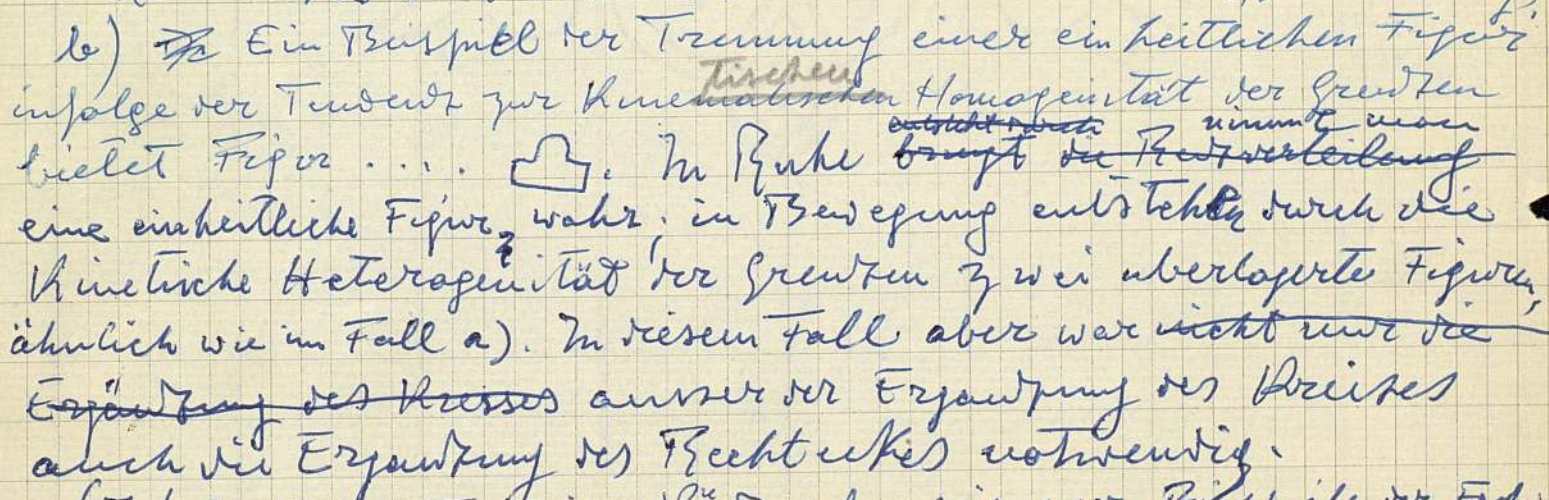 b) Ein Beispiel der Trennung einer einheitlichen Figur
infolge der Tendenz zur Kinematischen Homogenität der Grenzen
tischen
bietet Figur .... . In Ruhe bringt die Reizverteilung
entsteht durch nimmt man
eine einheitliche Figur wahr; in Bewegung entstehen durch die
Kinetische Heterogenität der Grenzen zwei uberlagerte Figuren,
ähnlich wie im Fall a). In diesem Fall aber war nicht nur die
Ergänzung des Kreises ausser der Erganzung des Kreises
auch die Erganzung des Rechteckes notwendig.